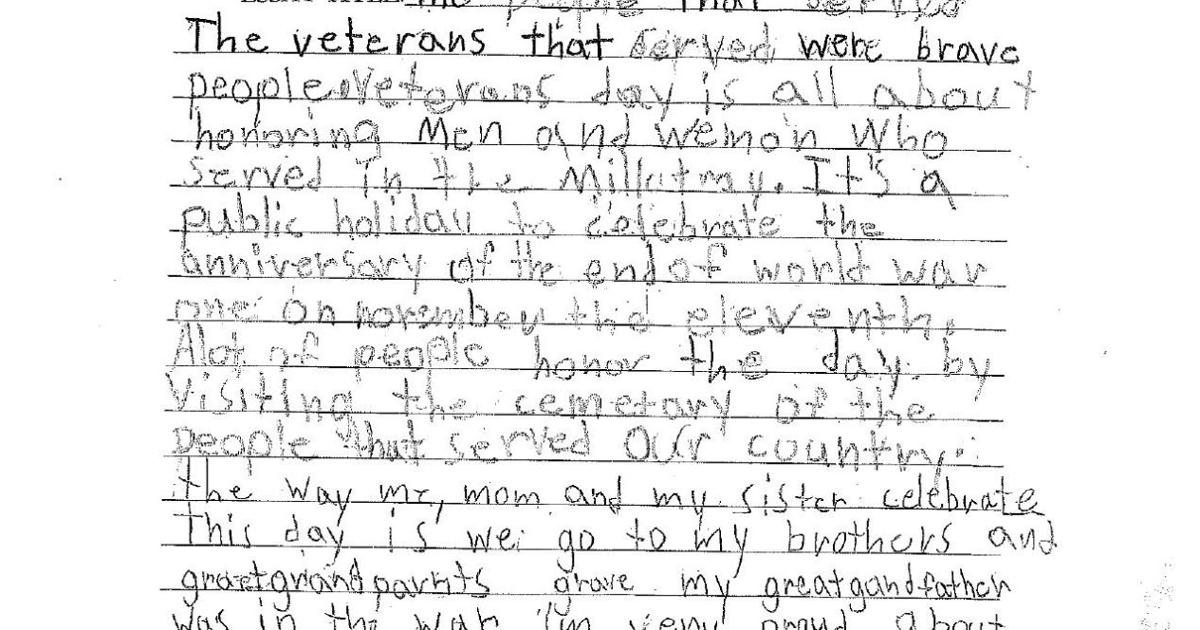 The people that served
The veterans that served were brave
people. Veterans day is all about
honoring Men and wemon who
served in the Millatray. It's a
public holiday to celebrate the
anniversary of the end of world war
one on novermber the eleventh.
Alot of people honor the day by
Visiting the cemetary of the
people that served our country.
the way me, mom and my sister celebrate
This day is we go to my brothers and
graetgriandparnts grave my greatgandfather
was in the war I'm very proud about